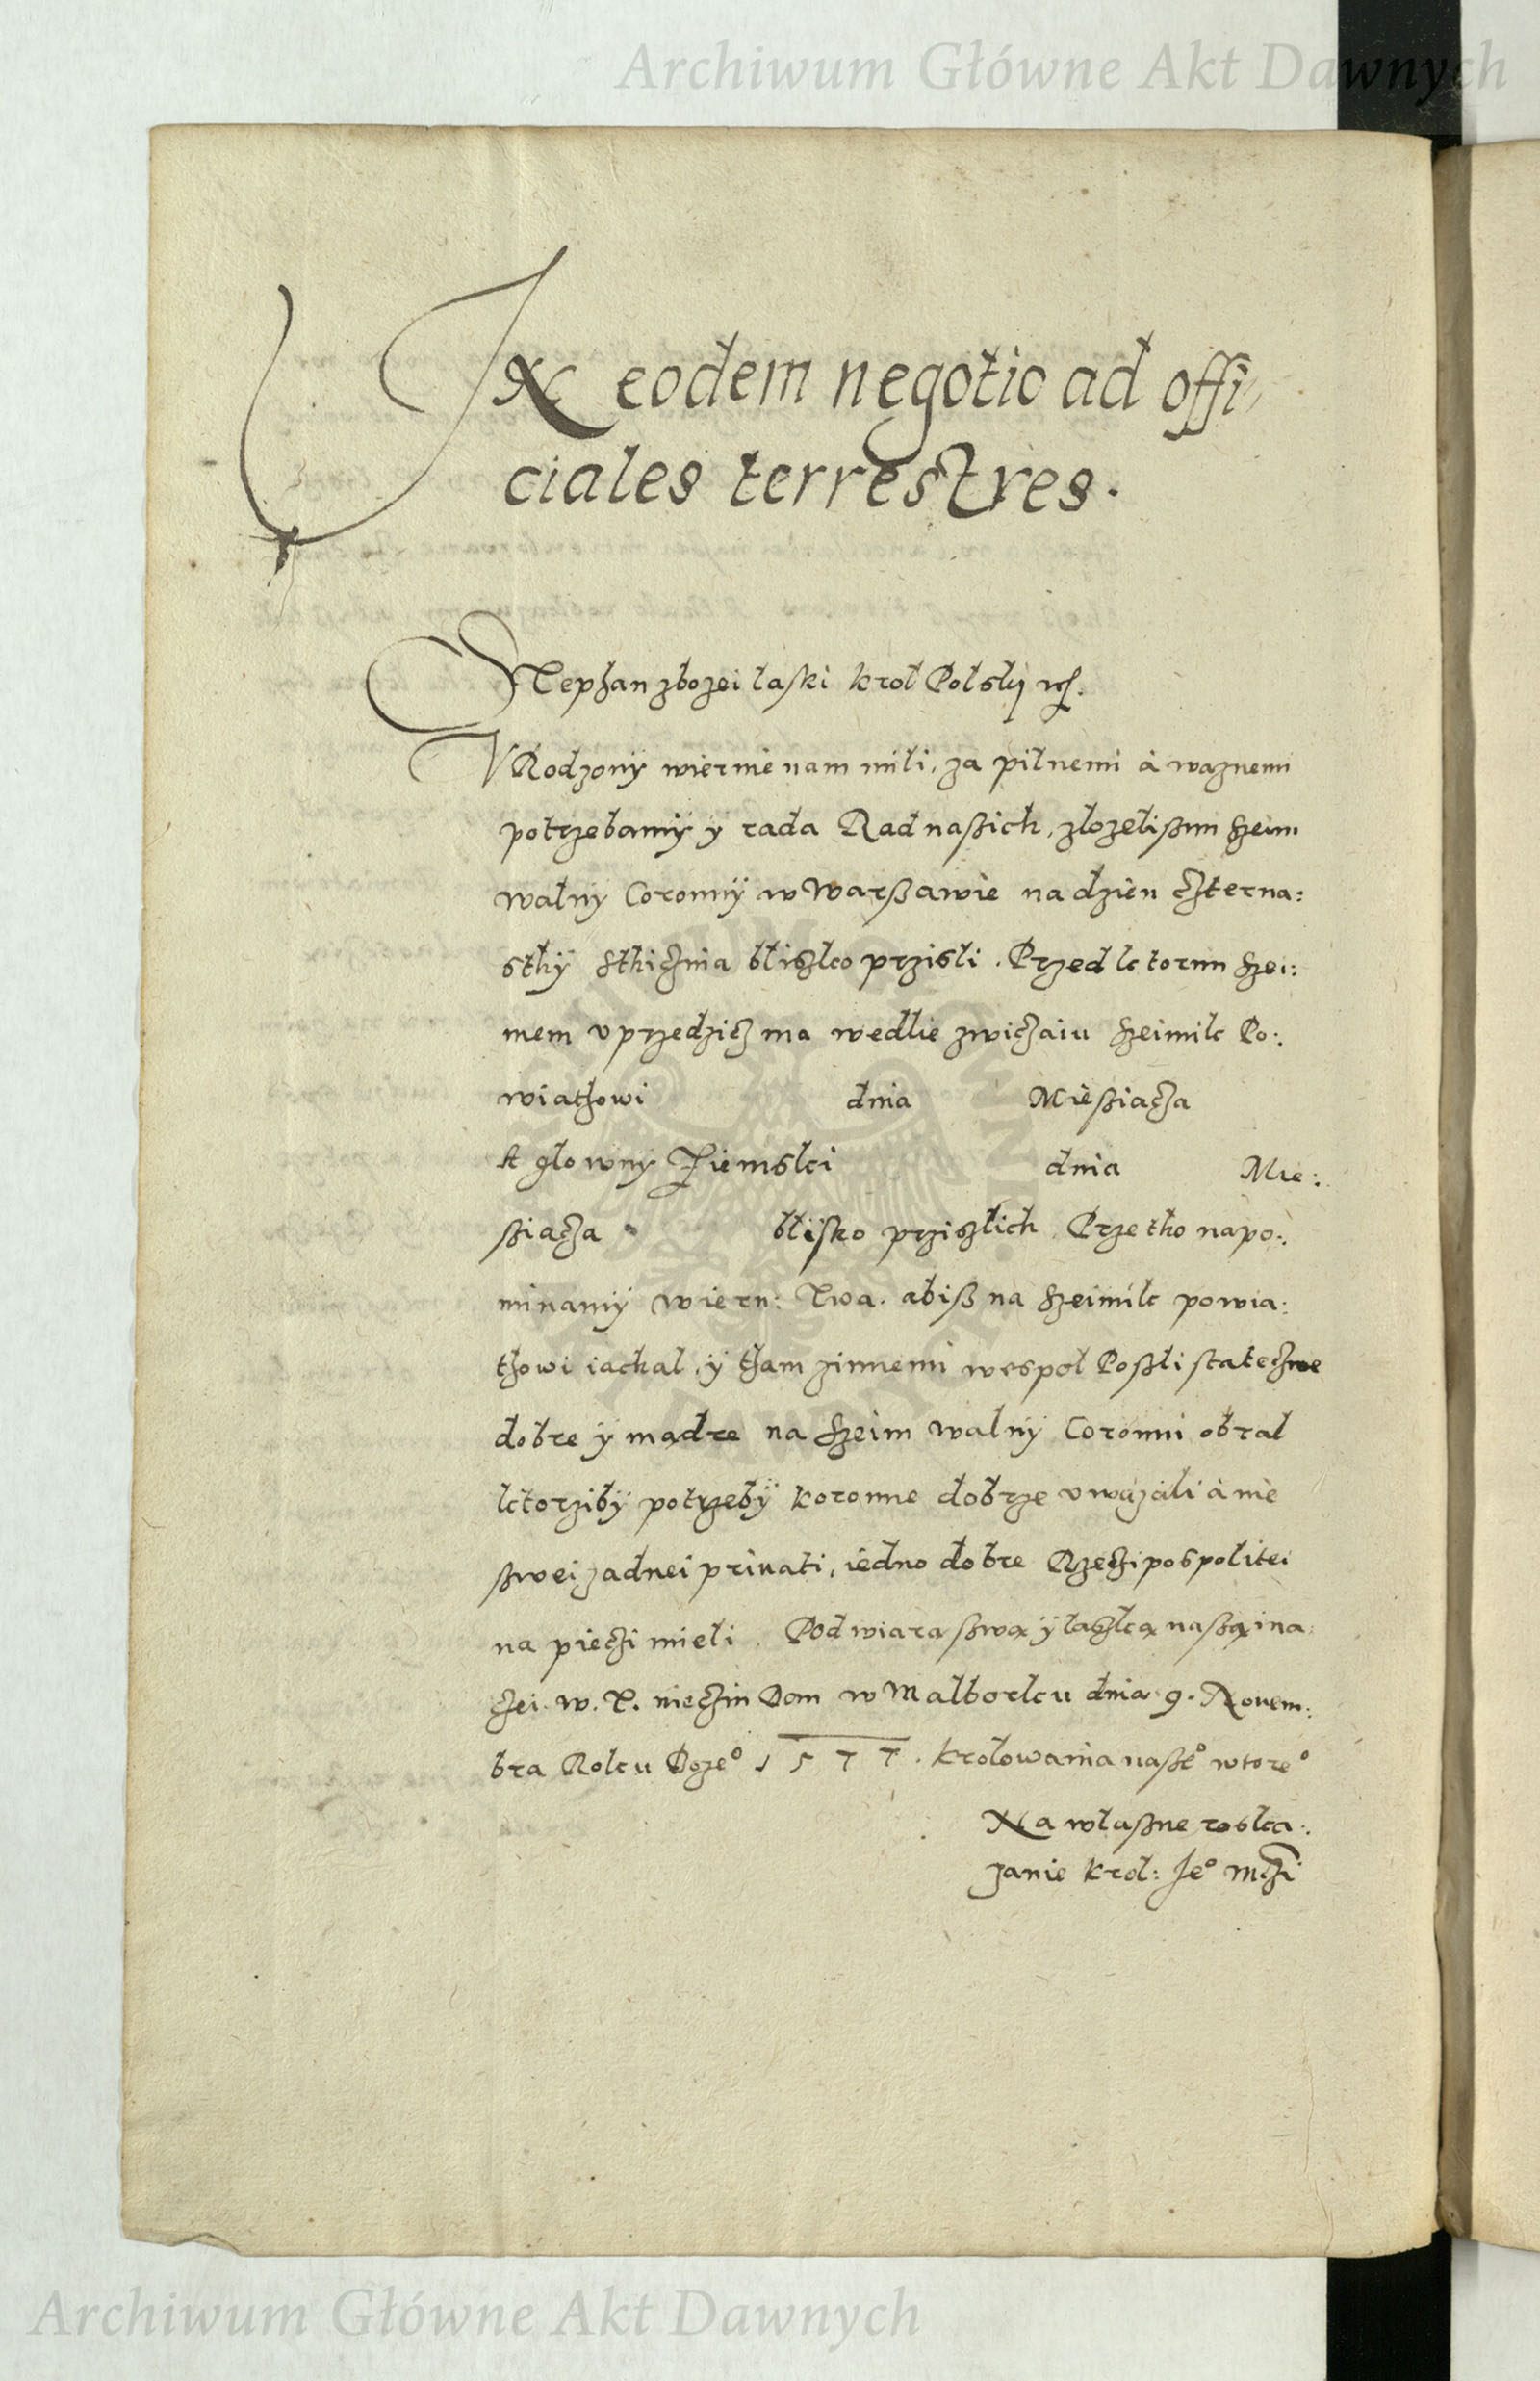 Archiwum Główne Akt Dawnych
In eodem negotio ad offi
ciales terrestres.
Stephan zbozei laski krol Polsky
VRodzony wiernie nam mili, za pilnemi à waznemi
potrzebamÿ y rada Rad naßich, zlozelißmi Szeim
walny Coronnÿ w Warßawie na dzien czterna:
sthÿ Sthicznia bliszko przisli. Przed ktorim Szei:
mem vprzedzicz ma wedlie zwiczaiu Szeimik Po:
wiathowi dnia Mießiacza
A glowny Ziemski dnia Mie:
ßiacza blisko przislich. Przetho napo:
minamÿ wiern: Twa. abiß na Szeimik powia:
thowi iachal, ÿ tham zinnemi wespol Poßli stateczne
dobre ÿ mądre na Szeim walnÿ Coronni obral
ktorzibÿ potrzebÿ koronne dobrze vwazali à nie
ßwei zadnei priuati, iedno dobre Rzeczipospolitei
na pieczi mieli. Pod wiara ßwą ÿ laszką naßą ina
czei. w. T. nieczin Dan w Malborku dnia 9. Nouem:
bra Roku Boze° 1577. krolowania naße° wtore°
Na wlaßne roska:
zanie krol: Je° Mczi
Archiwum Główne Akt Dawnych